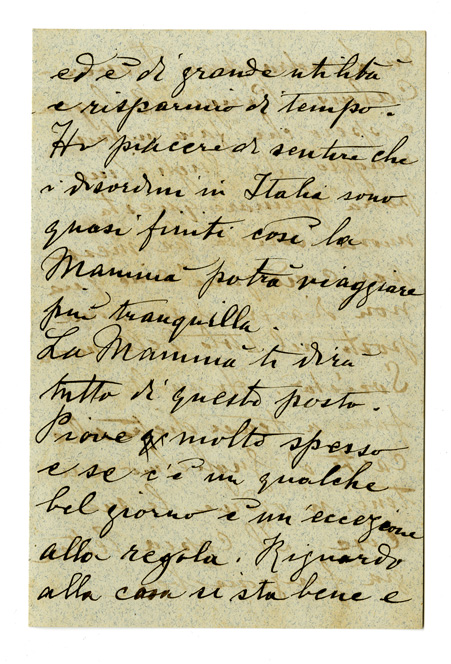 ed è di grande utilità
e risparmio di tempo.
Ho piacere di sentire che
i disordini in Italia sono
quasi finiti così la
Mamma potrà viaggiare
più tranquilla.
La Mamma ti dirà
tutto di questo posto.
Piove molto spesso
e se c'è un qualche
bel giorno è un'eccezione
alla regola. Riguardo
alla casa si sta bene e